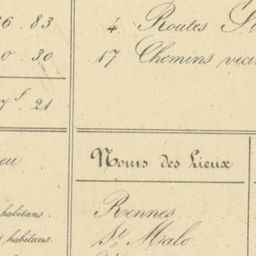 6. 83
4 Routes
0. 30
17 Chemins
21
Noms des Lieux
habitans.
Rennes
habitans.
St Malo